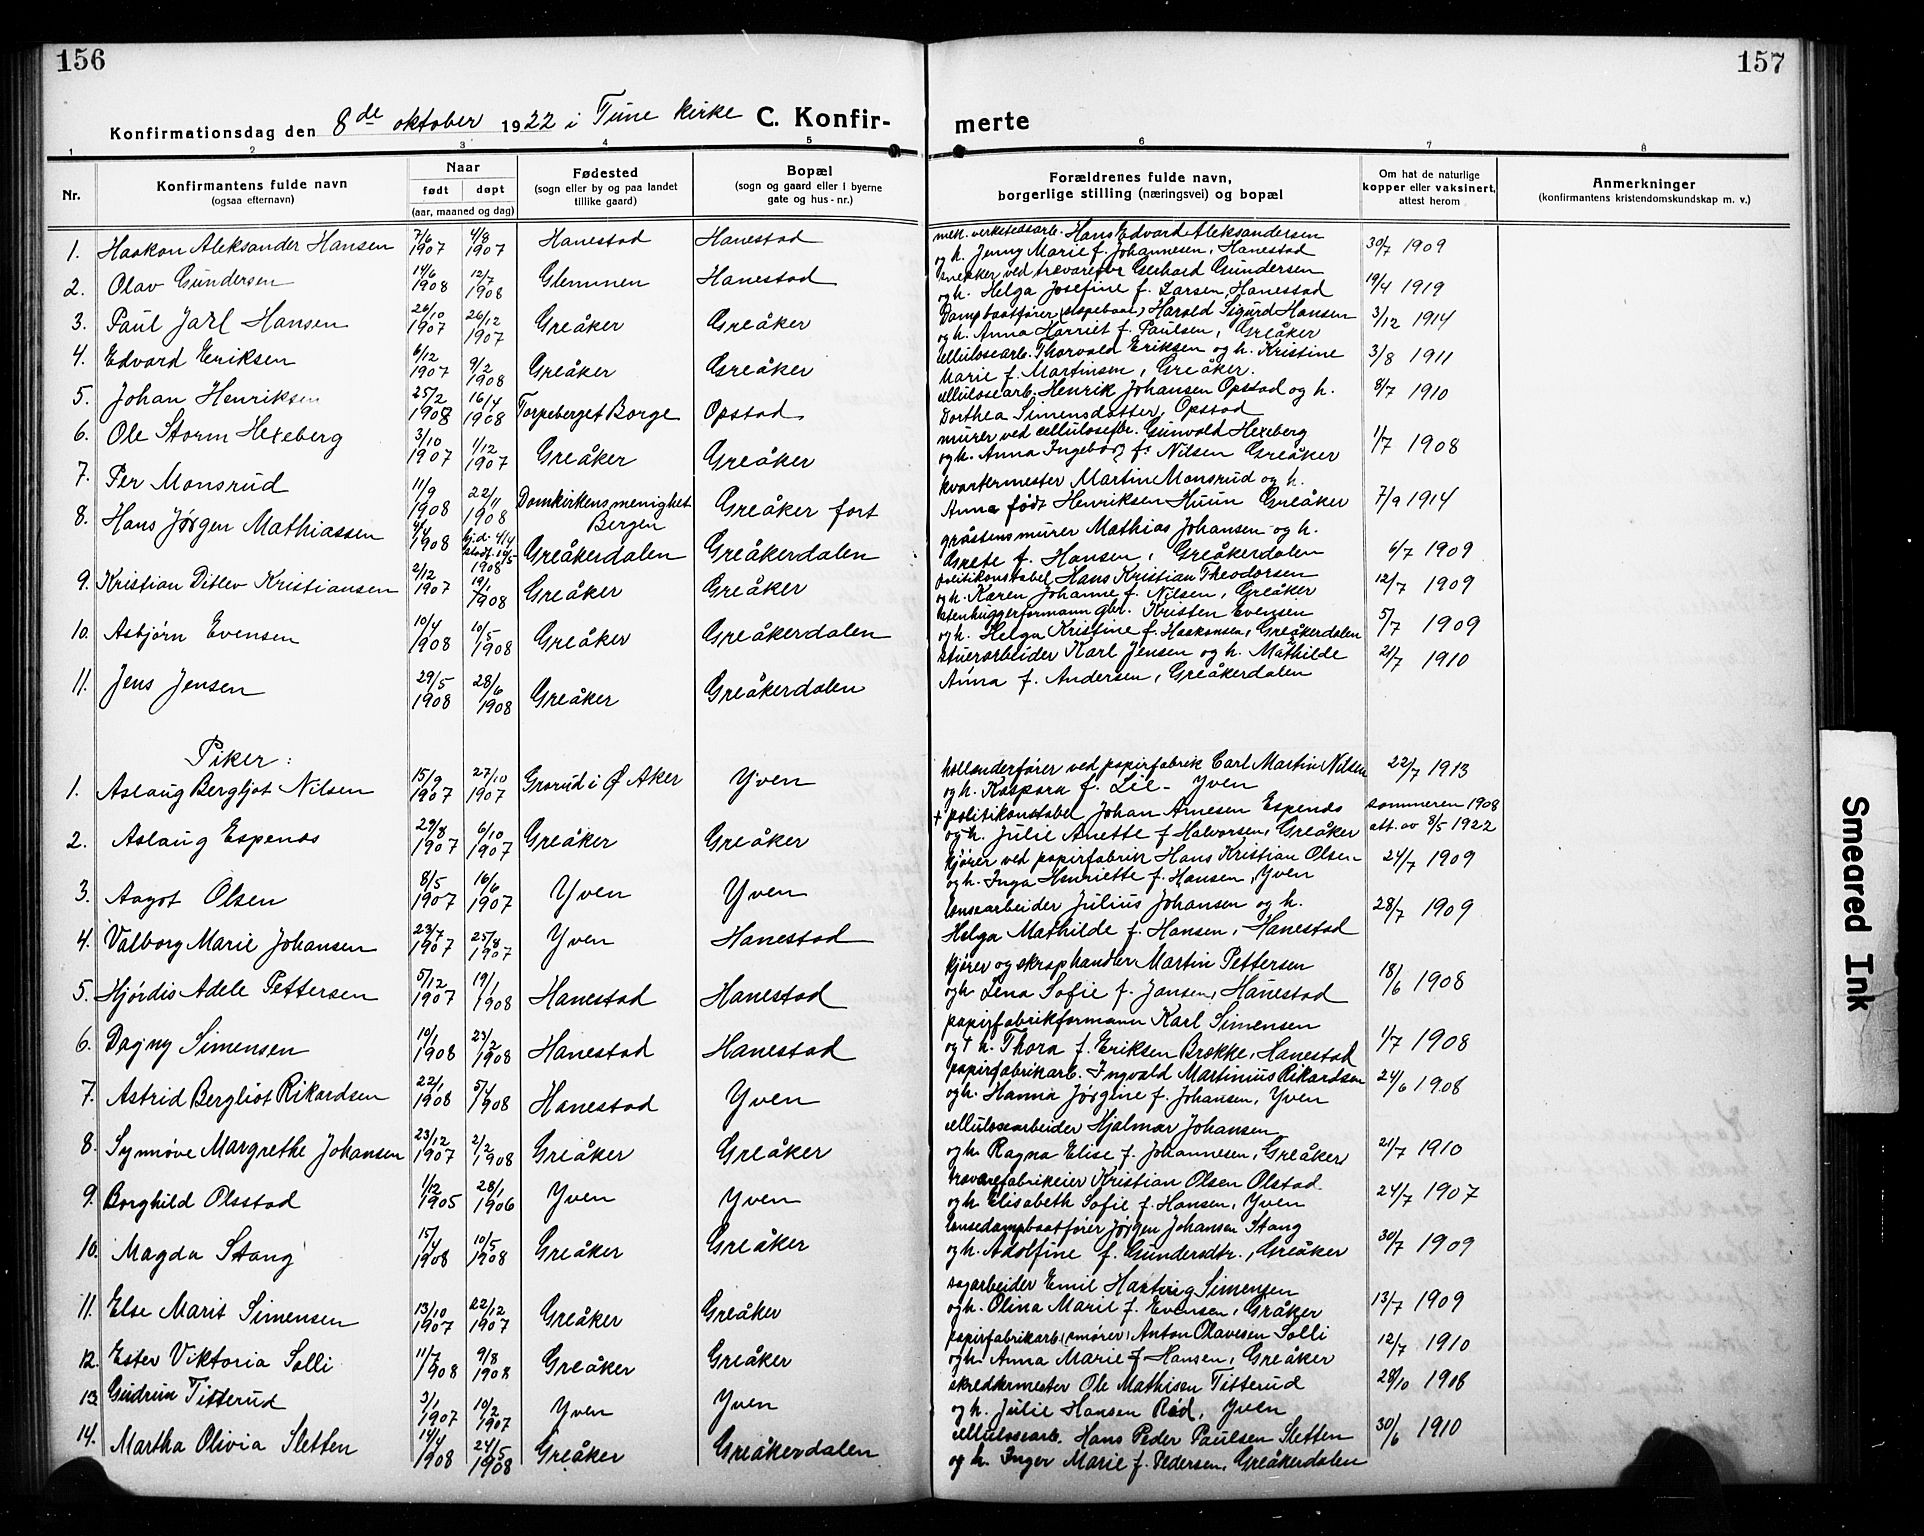 156
157
Konfirmationsdag den 8de oktober 1922 i Tune kirke C. Konfir-
merte
1 2 3 4 5 6 7 8
Nr.
Konfirmantens fulde navn
(ogsaa efternavn)
Naar
født døpt
(aar, maaned og dag)
Fødested
(sogn eller by og paa landet
tillike gaard)
Bopæl
(sogn og gaard eller i byerne
gate og hus-nr.)
Forældrenes fulde navn,
borgerlige stilling (næringsvei) og bopæl
Om hat de naturlige
kopper eller vaksinert,
attest herom
Anmerkninger
(konfirmantens kristendomskundskap m. v.)
1. Haakon Aleksander Hansen 7/6 1907 4/8 1907 Hanestad Hanestad
mek. verkstedsarb. Hans Edvard Aleksandersen
og h. Jenny Marie f. Johannesen, Hanestad 30/7 1909
2. Olav Gundersen 14/6 1908 12/7 1908 Glemmen Hanestad
snekker ved trævarefbr Gerhard Gundersen
og h. Helga Josefine f. Larsen, Hanestad 19/4 1919
3. Paul Jarl Hansen 26/10 1907 26/12 1907 Greåker Greåker
Dampbaatfører (slæpebaat) Harald Sigurd Hansen
og h. Anna Harriet f. Paulsen, Greåker 3/12 1914
4. Edvard Eriksen 6/12 1907 9/2 1908 Greåker Greåker
cellulosearb. Thorvald Eriksen og h. Kristine
Marie f. Martinsen, Greåker. 3/8 1911
5. Johan Henriksen 25/2 1908 16/4 1908 Torpeberget Borge Opstad
cellulosearb. Henrik Johansen Opstad og h.
Dorthea Simensdatter, Opstad 8/7 1910
6. Ole Storm Hexeberg 3/10 1907 1/12 1907 Greåker Greåker
murer ved cellulosefbr. Gunvald Hexeberg
og h. Anna Ingeborg f. Nilsen Greåker 1/7 1908
7. Per Monsrud 11/9 1908 22/11 1908 Domkirkens menighet Bergen Greåker fort
kvartermester Martin Monsrud og h.
Anna født Henriksen Huun Greåker 7/9 1914
8. Hans Jørgen Mathiassen 4/4 1908 hj.d. 4/4 stadf. 10/5 1908 Greåkerdalen Greåkerdalen
gråstensmurer Mathias Johansen og h.
Grete f. Hansen, Greåkerdalen 6/7 1909
9. Kristian Ditlev Kristiansen 2/12 1907 19/1 1908 Greåker Greåker
politikonstabel Hans Kristian Theodorsen
og h. Karen Johanne f. Nilsen, Greåker 12/7 1909
10. Asbjørn Evensen 10/4 1908 10/5 1908 Greåker Greåkerdalen
stenhuggerformann gbr. Kristen Evensen
og h. Helga Kristine f. Haakonsen, Greåkerdalen 5/7 1909
11. Jens Jensen 29/5 1908 28/6 1908 Greåker Greåkerdalen
stuerarbeider Karl Jensen og h. Mathilde
Anna f. Andersen, Greåkerdalen 21/7 1910
Piker:
1. Aslaug Bergljot Nilsen 15/9 1907 27/10 1907 Grorud i Ø Aker Yven
hollenderfører ved papirfabrik Carl Martin Nilsen
og h. Kaspara f. Lie - Yven 22/7 1913
2. Aslaug Espends 29/8 1907 6/10 1907 Greåker Greåker
+ politikonstabel Johan Arnesen Espends
og h. Julie Anette f Halvorsen, Greåker sommeren 1908
att. av 8/5 1922
3. Aagot Olsen 8/5 1907 16/6 1907 Yven Yven
kjører ved papirfabrik Hans Kristian Olsen
og h. Inga Henriette f. Hansen, Yven 24/7 1909
4. Valborg Marie Johansen 23/7 1907 25/8 1907 Yven Hanestad
lensearbeider Julius Johansen og h.
Helga Mathilde f. Hansen, Hanestad 28/7 1909
5. Hjørdis Adele Pettersen 5/12 1907 19/1 1908 Hanestad Hanestad
kjører og skraphandler Martin Pettersen
og h Lena Sofie f. Jansen, Hanestad 18/6 1908
6. Dagny Simensen 10/1 1908 23/2 1908 Hanestad Hanestad
papirfabrikformann Karl Simensen
og + h. Thora f. Eriksen Brække, Hanestad 1/7 1908
7. Astrid Bergliot Rikardsen 22/1 1908 5/4 1908 Hanestad Yven
papirfabrikarb. Ingvald Martinius Rikardsen
og h. Hanna Jørgine f. Johansen, Yven 24/6 1908
8. Synnøve Margrethe Johansen 23/12 1907 2/2 1908 Greåker Greåker
cellulosearbeider Hjalmar Johansen
og h. Ragna Elise f. Johannesen, Greåker 21/7 1910
9. Borghild Olsstad 1/12 1905 28/1 1906 Yven Yven
trævarefabrikeier Kristian Olsen Olstad
og h. Elisabeth Sofie f. Hansen, Yven 24/7 1907
10. Magda Stang 15/4 1908 10/5 1908 Greåker Greåker
lensedampbaatfører Jørgen Johansen Stang
og h. Adolfine f. Gundersdtr., Greåker 30/7 1909
11. Else Marit Simensen 13/10 1907 22/12 1907 Greåker Greåker
sagarbeider Emil Hartvig Simensen
og h. Olina Marie f. Evensen, Gråker 13/7 1909
12. Ester Viktoria Solli 11/7 1908 9/8 1908 Greåker Greåker
papirfabrikarb. (smører) Anton Olavesen Solli
og h. Anna Marie f Hansen, Greåker 12/7 1910
13. Gudrun Titterud 3/1 1907 10/2 1907 Yven Yven
skreddermester Ole Mathisen Titterud
og h. Julie Hansen Rød, Yven 28/10 1908
14. Martha Olivia Sletten 14/4 1908 24/5 1908 Greåker Greåkerdalen
cellulosearb. Hans Peder Paulsen Sletten
og h. Inger Marie f. Pedersen, Greåkerdalen 30/6 1910
Smeared Ink